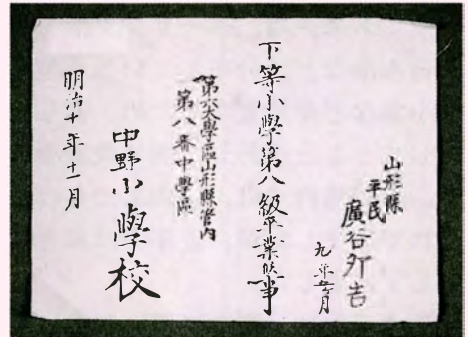 山形縣
平民
廣谷外吉
九年五ヶ月
下等小學第八級卒業候事
第六大學區山形縣管内
第八番中學區
中野小學校
明治十年十一月